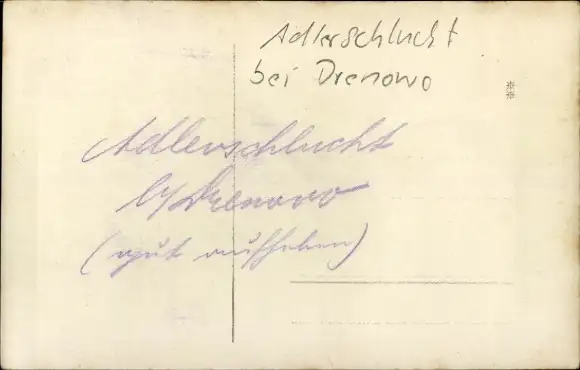 Adlerschlucht
bei Drenowo
Adlerschlucht
b/ Drenovo
(gut aufheben)